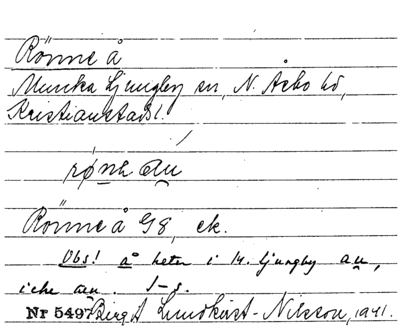 Rönne å
Munka Ljungby sn, N. Åsbo hd,
Kristianstads l.
Rönneå G8, ek.
Obs! å heter i M. Ljungby au,
icke æu. I-s.
Nr 5497 Birgit Lundkvist-Nilsson, 1941.